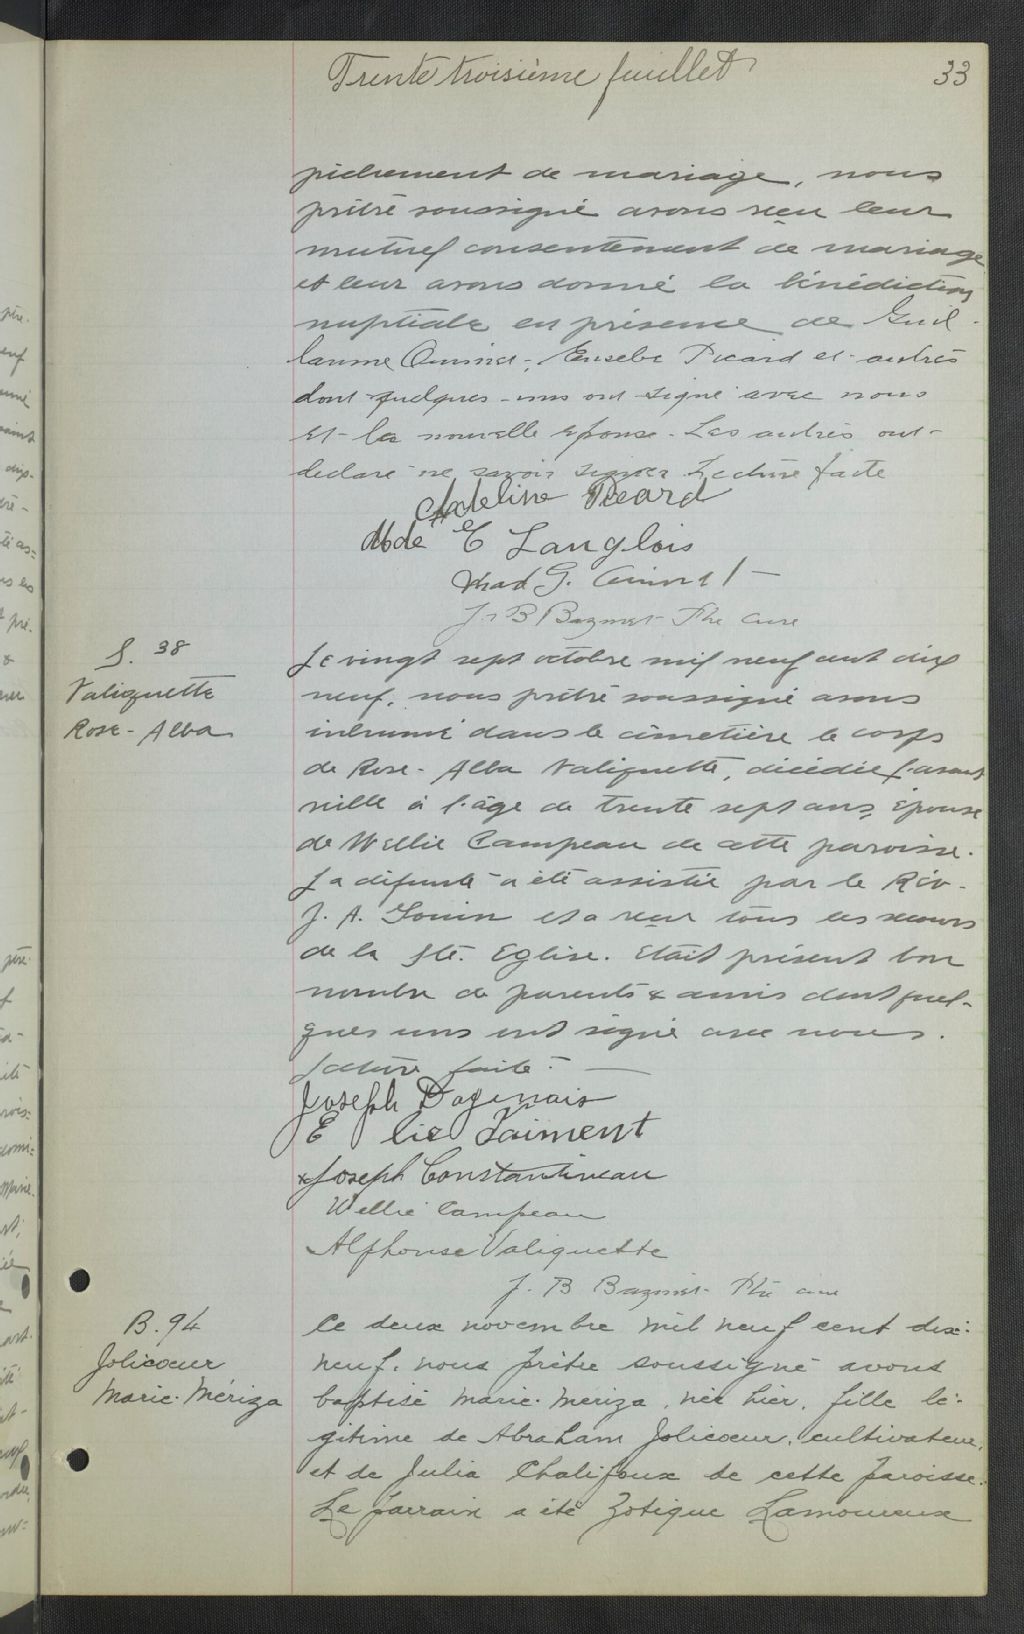 Trente troisième feuillet
33
pêchement de mariage, nous
prêtre soussigné avons reçu leur
mutuel consentement de mariage
et leur avons donné la bénédiction
nuptiale en présence de Guil-
laume Ouimet, Eusebe Picard et autres
dont quelques-uns ont signé avec nous
et la nouvelle épouse. Les autres ont
declaré ne savoir signer. Lecture faite
Adeline Picard
E Langlois
G. Ouimet
J. B Bazinet Ptre Curé
S. 38
Valiquette
Rose-Alba
Le vingt sept octobre mil neuf cent dix
neuf, nous prêtre soussigné avons
inhumé dans le cimetière le corps
de Rose-Alba Valiquette, décédée l'avant
veille à l'âge de trente sept ans, épouse
de Wellie Campeau de cette paroisse.
La défunte a été assistée par le Rév.
J. A. et a reçu tous les secours
de la Ste. Eglise. Etait présent bon
nombre de parents & amis dont quel-
ques uns ont signé avec nous.
Lecture faite.
Joseph Dagenais
E lie
x Joseph Constantineau
Wellie Campeau
Alphonse Valiquette
J. B Bazinet Ptre curé
B. 94
Jolicoeur
Marie-Mériza
Le deux novembre mil neuf cent dix-
neuf, nous prêtre soussigné avons
baptisé Marie-Meriza, née hier, fille lé-
gitime de Abraham Jolicoeur, cultivateur,
et de Julia Chalifoux de cette paroisse.
Le parrain a été Zotique Lamoureux